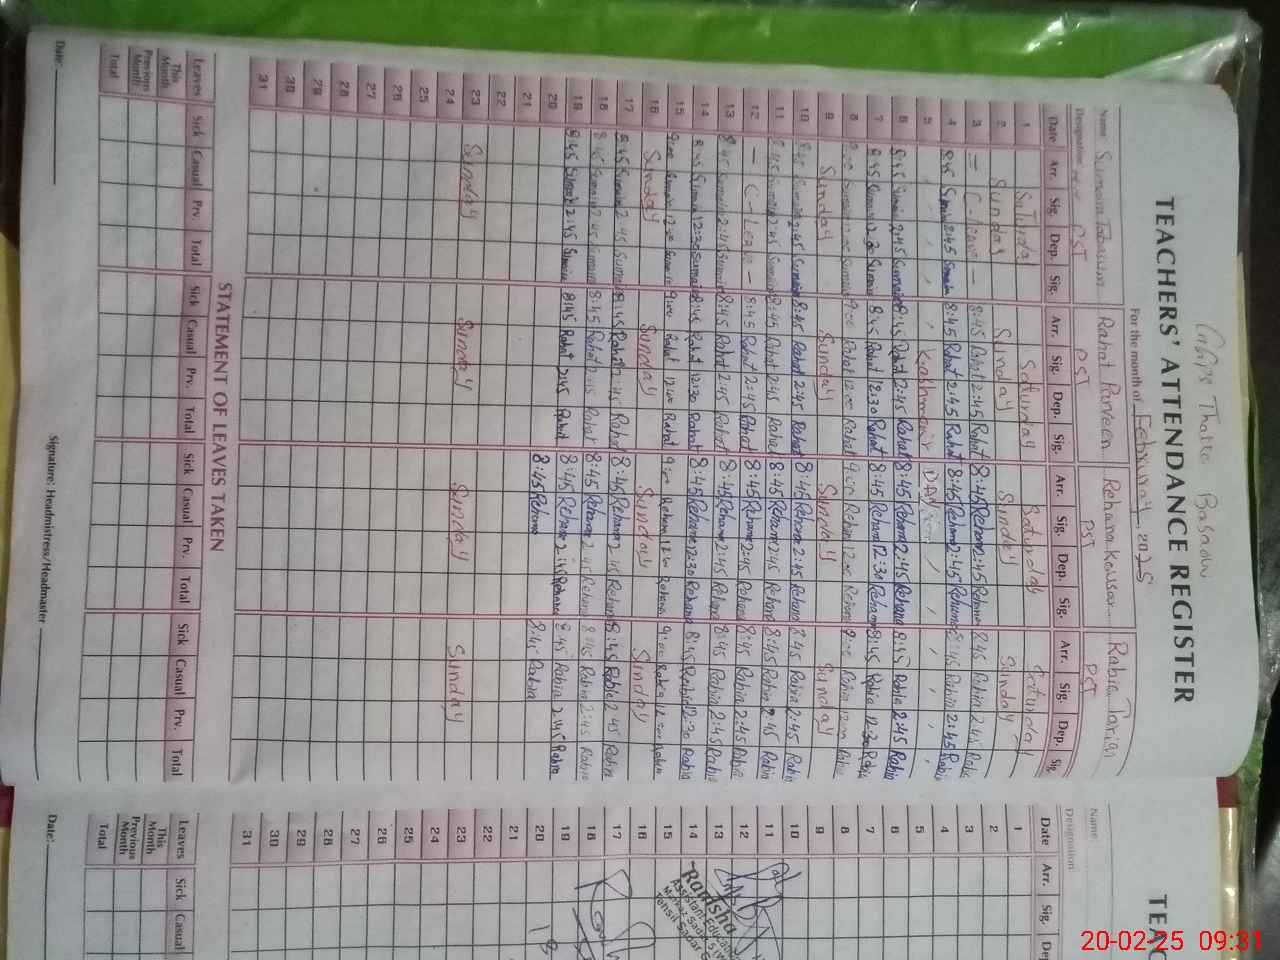 GGPS Thatte
TEACHERS' ATTENDANCE REGISTER
For the month of February 2025
Name Sumaira Tabassum Rahat Parveen Rehana Kousar Rabia Tariq
Designation PST PST PST PST
Date Arr. Sig. Dep. Sig. Arr. Sig. Dep. Sig. Arr. Sig. Dep. Sig. Arr. Sig. Dep. Sig.
1 Saturday Saturday Saturday
2 Sunday Sunday Sunday Sunday
3 8:45 Rahat 2:45 Rahat 8:45 Rehana 2:45 Rehana 8:45 Rabia 2:45
4 8:45 2:45 8:45 Rahat 2:45 Rahat 8:45 Rehana 2:45 Rehana 8:45 Rabia 2:45 Rabia
5 Kashmir DAY
6 8:45 2:45 8:45 Rahat 2:45 Rahat 8:45 Rehana 2:45 Rehana 8:45 Rabia 2:45 Rabia
7 8:45 12:30 8:45 Rahat 12:30 Rahat 8:45 Rehana 12:30 Rehana 8:45 Rabia 12:30 Rabia
8 9:00 12:00 9:00 Rahat 12:00 Rahat 9:00 Rehana 12:00 Rehana 9:00 Rabia 12:00 Rabia
9 Sunday Sunday Sunday Sunday
10 8:45 2:45 8:45 Rahat 2:45 Rahat 8:45 Rehana 2:45 Rehana 8:45 Rabia 2:45 Rabia
11 8:45 2:45 8:45 Rahat 2:45 Rahat 8:45 Rehana 2:45 Rehana 8:45 Rabia 2:45 Rabia
12 — C-Leave — 8:45 Rahat 2:45 Rahat 8:45 Rehana 2:45 Rehana 8:45 Rabia 2:45 Rabia
13 8:45 2:45 8:45 Rahat 2:45 Rahat 8:45 Rehana 2:45 Rehana 8:45 Rabia 2:45 Rabia
14 8:45 12:30 8:45 Rahat 12:30 Rahat 8:45 Rehana 12:30 Rehana 8:45 Rabia 12:30 Rabia
15 9:00 12:00 9:00 Rahat 12:00 Rahat 9:00 Rehana 12:00 Rehana 9:00 Rabia 12:00 Rabia
16 Sunday Sunday Sunday Sunday
17 8:45 2:45 8:45 Rahat 2:45 Rahat 8:45 Rehana 2:45 Rehana 8:45 Rabia 2:45 Rabia
18 8:45 2:45 8:45 Rahat 2:45 Rahat 8:45 Rehana 2:45 Rehana 8:45 Rabia 2:45 Rabia
19 8:45 2:45 8:45 Rahat 2:45 Rahat 8:45 Rehana 2:45 Rehana 8:45 Rabia 2:45 Rabia
20 8:45 Rehana 8:45 Rabia
21
22
23 Sunday Sunday Sunday Sunday
24
25
26
27
28
29
30
31
STATEMENT OF LEAVES TAKEN
Leaves Sick Casual Prv. Total Sick Casual Prv. Total Sick Casual Prv. Total Sick Casual Prv. Total
This Month
Previous Month
Total
Date: Signature: Headmistress/Headmaster
TEAC
Name:
Designation
Date Arr. Sig. Dep
1
2
3
4
5
6
7
8
9
10
11
12
13
14
15
16
17
18
19
20
21
22
23
24
25
26
27
28
29
30
31
Ramsha
Assistant Educ
Markaz Sadar
Tehsil Sadar
Leaves Sick Casual
This Month
Previous Month
Total
Date:
20-02-25 09:31